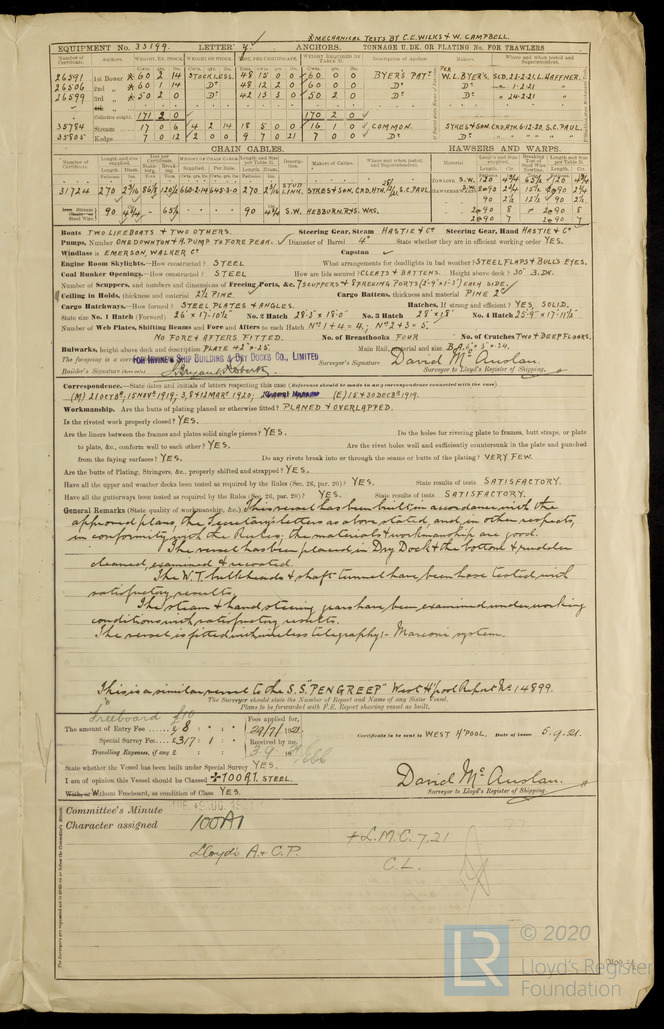 & MECHANICAL TESTS BY C.E. WILKS & W. CAMPBELL.
EQUIPMENT No. 33199. LETTER y. ANCHORS. TONNAGE U. DK. OR PLATING No. FOR TRAWLERS
Number of Certificate. Anchors. WEIGHT, EX. STOCK. WEIGHT OF STOCK. TEST, PER CERTIFICATE. WEIGHT REQUIRED BY TABLE 31. Description of Anchor. Makers. Where and when tested and Superintendent.
26591 1st Bower 60 2 14 STOCKLESS. 48 15 0 0 60 0 0 BYER'S PATT. W.L. BYER'S. SLD. 28-2-21. L. HAFFNER.
26506 2nd " 60 1 14 Do 48 12 2 0 60 0 0 Do Do " 1-2-21
26599 3rd " 50 2 0 Do 50 2 0 Do Do " 24-2-21 "
Collective weight. 171 2 0 170 2 0
35784 Stream 17 0 6 4 2 14 18 5 0 0 16 1 0 COMMON. SYKES & SON. CRD. HTH. 6-12-20. S.C. PAUL.
35805 Kedge 7 0 12 2 0 0 9 7 0 21 7 0 0 Do Do " " " "
CHAIN CABLES. HAWSERS AND WARPS.
31724 270 2 3/16 270 2 3/16 STUD LINK. SYKES & SON, CRD. HTH. S.C. PAUL
Stream 90 4 3/4 - 65 1/2 90 4 3/4 S.W. HEBBURN. RYS. WKS.
Boats TWO LIFEBOATS & TWO OTHERS. Steering Gear, Steam HASTIE & Co Steering Gear, Hand HASTIE & Co
Pumps, Number ONE DOWNTON & H. PUMP TO FORE PEAK. Diameter of Barrel 4" State whether they are in efficient working order YES.
Windlass is EMERSON, WALKER Co Capstan
Engine Room Skylights.—How constructed? STEEL What arrangements for deadlights in bad weather? STEEL FLAPS & BULL'S EYES.
Coal Bunker Openings.—How constructed? STEEL How are lids secured? CLEATS & BATTENS. Height above deck? 30" B. DK.
Number of Scuppers, and numbers and dimensions of Freeing Ports, &c. 7 SCUPPERS & 8 FREEING PORTS (2'-9" x 1'-5") EACH SIDE.
Ceiling in Holds, thickness and material 2 1/2 PINE. Cargo Battens, thickness and material PINE 2"
Cargo Hatchways.—How formed? STEEL PLATES & ANGLES. Hatches, If strong and efficient? YES, SOLID.
State size No. 1 Hatch (Forward) 26' x 17'-10 1/2" No. 2 Hatch 28'-5" x 18'-0" No. 3 Hatch 28' x 18' No. 4 Hatch 25'-9" x 17'-11 1/2"
Number of Web Plates, Shifting Beams and Fore and Afters to each Hatch Nos 1 & 4 = 4; Nos 2 & 3 = 5.
NO FORE & AFTERS FITTED. No. of Breasthooks FOUR No. of Crutches TWO & DEEP FLOORS.
Bulwarks, height above deck and description PLATE 42" x 25. Main Rail, material and size B.A. 6" x 3" x 34.
FOR IRVINE'S SHIP BUILDING & DRY DOCKS CO., LIMITED
The foregoing is a correct
Builder's Signature Surveyor's Signature David McAuslan.
General Manager Surveyor to Lloyd's Register of Shipping.
Correspondence.—State dates and initials of letters respecting this case (Reference should be made to any correspondence connected with the case)
(M) 21 OCTBR; 15 NOVR 1919; 3, 8 & 12 MAR. 1920; (E) 15 & 30 DECBR 1919.
Workmanship. Are the butts of plating planed or otherwise fitted? PLANED & OVERLAPPED.
Is the riveted work properly closed? YES.
Are the liners between the frames and plates solid single pieces? YES. Do the holes for riveting plate to frames, butt straps, or plate
to plate, &c., conform well to each other? YES. Are the rivet holes well and sufficiently countersunk in the plate and punched
from the faying surfaces? YES. Do any rivets break into or through the seams or butts of the plating? VERY FEW.
Are the butts of Plating, Stringers, &c., properly shifted and strapped? YES.
Have all the upper and weather decks been tested as required by the Rules (Sec. 26, par. 20)? YES. State results of tests SATISFACTORY.
Have all the gutterways been tested as required by the Rules (Sec. 26, par. 20)? YES. State results of tests SATISFACTORY.
General Remarks (State quality of workmanship, &c.) This vessel has been built in accordance with the
approved plans, the Secretary's letters as above stated, and in other respects,
in conformity with the Rules; the materials & workmanship are good.
The vessel has been placed in Dry Dock & the bottom & rudder
cleaned, examined & recoated.
The W.T. bulkheads & shaft tunnel have been hose tested with
satisfactory results.
The steam & hand steering gears have been examined under working
conditions with satisfactory results.
The vessel is fitted with wireless telegraphy:- Marconi system.
This is a similar vessel to the S.S. "PENGREEP" West H'pool Report No 14899.
The Surveyor should state the Number of Report and Name of any Sister Vessel.
Plans to be forwarded with F.E. Report showing vessel as built.
Freeboard £10
The amount of Entry Fee £ 8 : : Fees applied for,
Special Survey Fee £317 : 1 : 29/7/1921
Travelling Expenses, if any £ : : Received by me, 3-9-19
Certificate to be sent to WEST H'POOL. Date of issue 5.9.21.
State whether the Vessel has been built under Special Survey YES.
I am of opinion this Vessel should be Classed +100A1. STEEL.
With, or Without Freeboard, as condition of Class YES.
David McAuslan.
Surveyor to Lloyd's Register of Shipping.
Committee's Minute
Character assigned 100A1
+L.M.C. 7,21
Lloyd's A & C.P.
C.L.
LR
© 2020
Lloyd's Register
Foundation